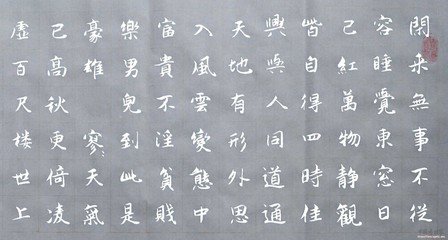 閑來無事不從
容睡覺東窓日
己紅萬物静觀
皆自得四時佳
興與人同道通
天地有形外思
入風雲變態中
富貴不淫貧賤
樂男兒到此是
豪雄寥〻天氣
己高秋更倚凌
虛百尺楼世上